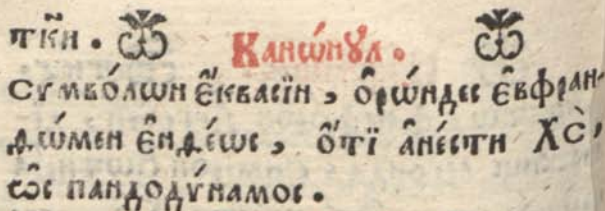 ткн҃и. Канѡ́нꙋл.
Сѵмво́лѡн є҆́квасїн, ѻ҆рѡ́ндес є҆вфран-
дѡ́мен є҆ндє́ѡс, ѻ҆́тї а҆не́сти Хс̀,
ѡ҆с пандодѵ́намос.